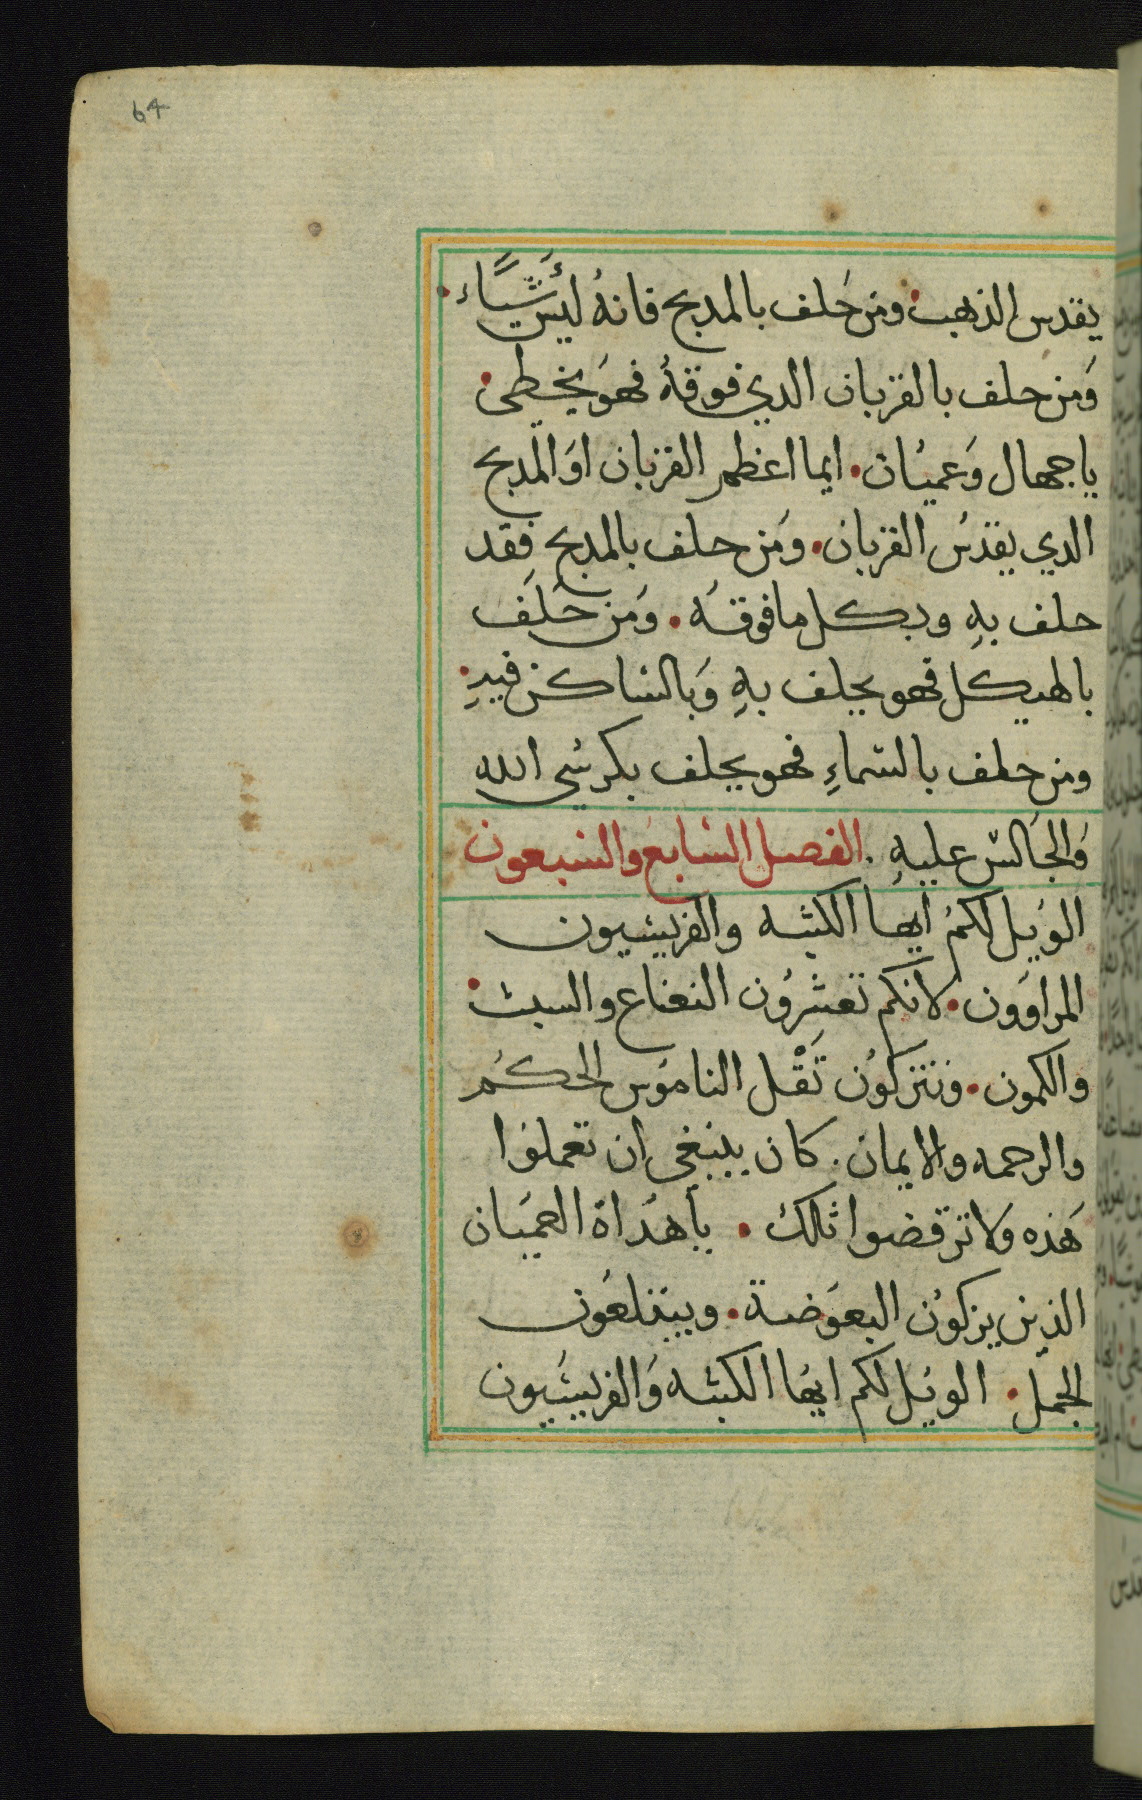 64
يقدس الذهب ومن حَلف بالمدبح فانهُ ليسَ شياًء
وَمن حلف بالقربان الدي فوقهُ فهوَ يخطي
ياجهال وَعميَان ايما اعظم القربان اوَ المدبح
الدي يقدسُ القربان ومَن حلف بالمدبح فقد
حلف بهِ وبكل مافوقهُ ومَن حَلَف
بالهيكل فهو يحلف بهِ وَبالساكن فيهِ
ومن حلف بالسماءِ فهو يحلف بكرسي الله
وَالجَالس عليهِ . الفصل السَابعَ والسَبعون
الوَيل لكمُ ايها الكتبه والفريسيون
المراوَون لانكم تعشِرُون النعناع والسبت
والكمون وتتركوُن تَقْل الناموُس الحكمُ
والرحمه والايمان . كان ينبغي ان تعملوُا
هَذه وَلا ترفضوا تلك ياهُداة العميَان
الذين يزكوُن البعوَضة ويبتلعوُن
الجمل الويل لكم ايهَا الكتبه وَالفريسَيون